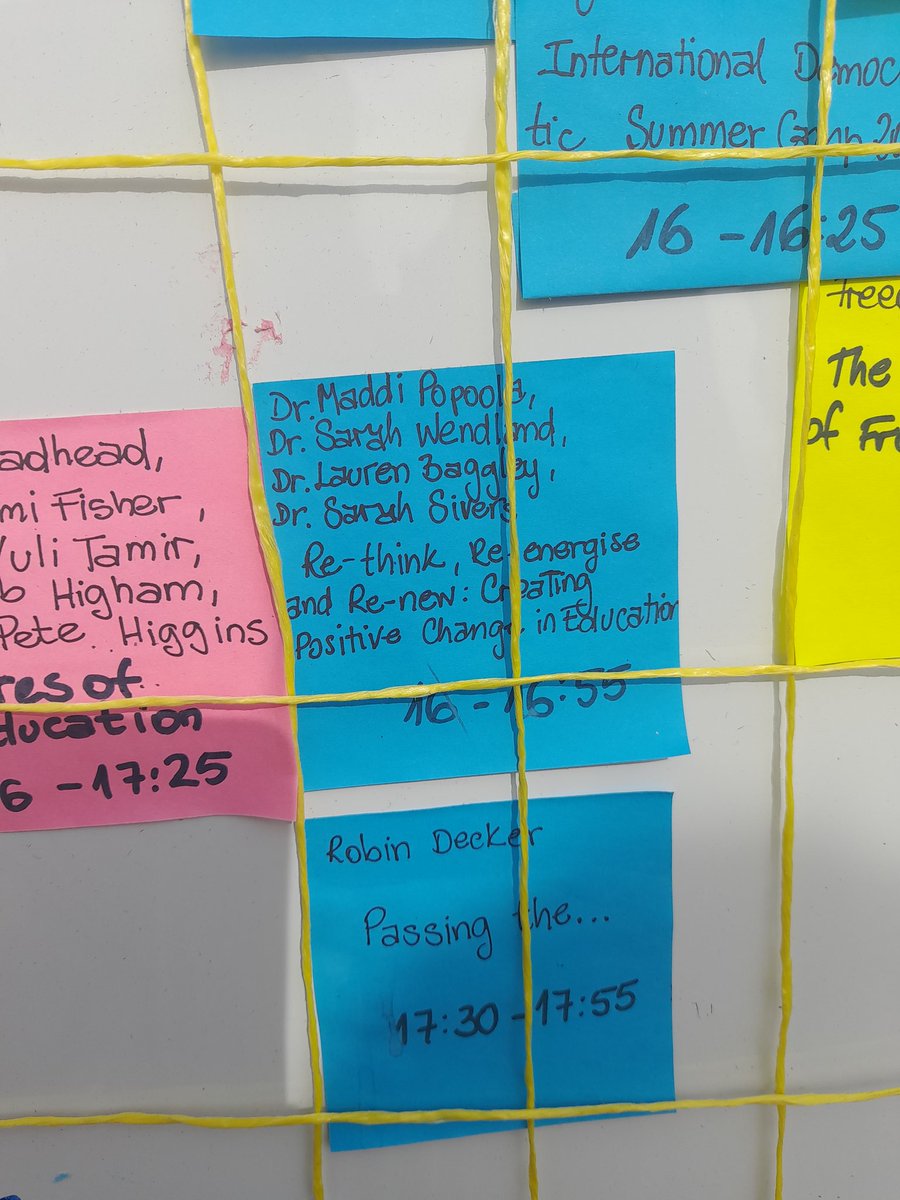 International Democ
tic Summer Camp
16 - 16:25
The
of
Dr. Maddi Popoola,
Dr. Sarah Wendland,
Dr. Lauren Baggley,
Dr. Sarah Sivers
Re-think, Re-energise
and Re-new: Creating
Positive Change in Education
16 - 16:55
adhead,
mi Fisher,
Yuli Tamir,
b Higham,
Pete Higgins
res of
ducation
6 - 17:25
Robin Decker
Passing the...
17:30 - 17:55